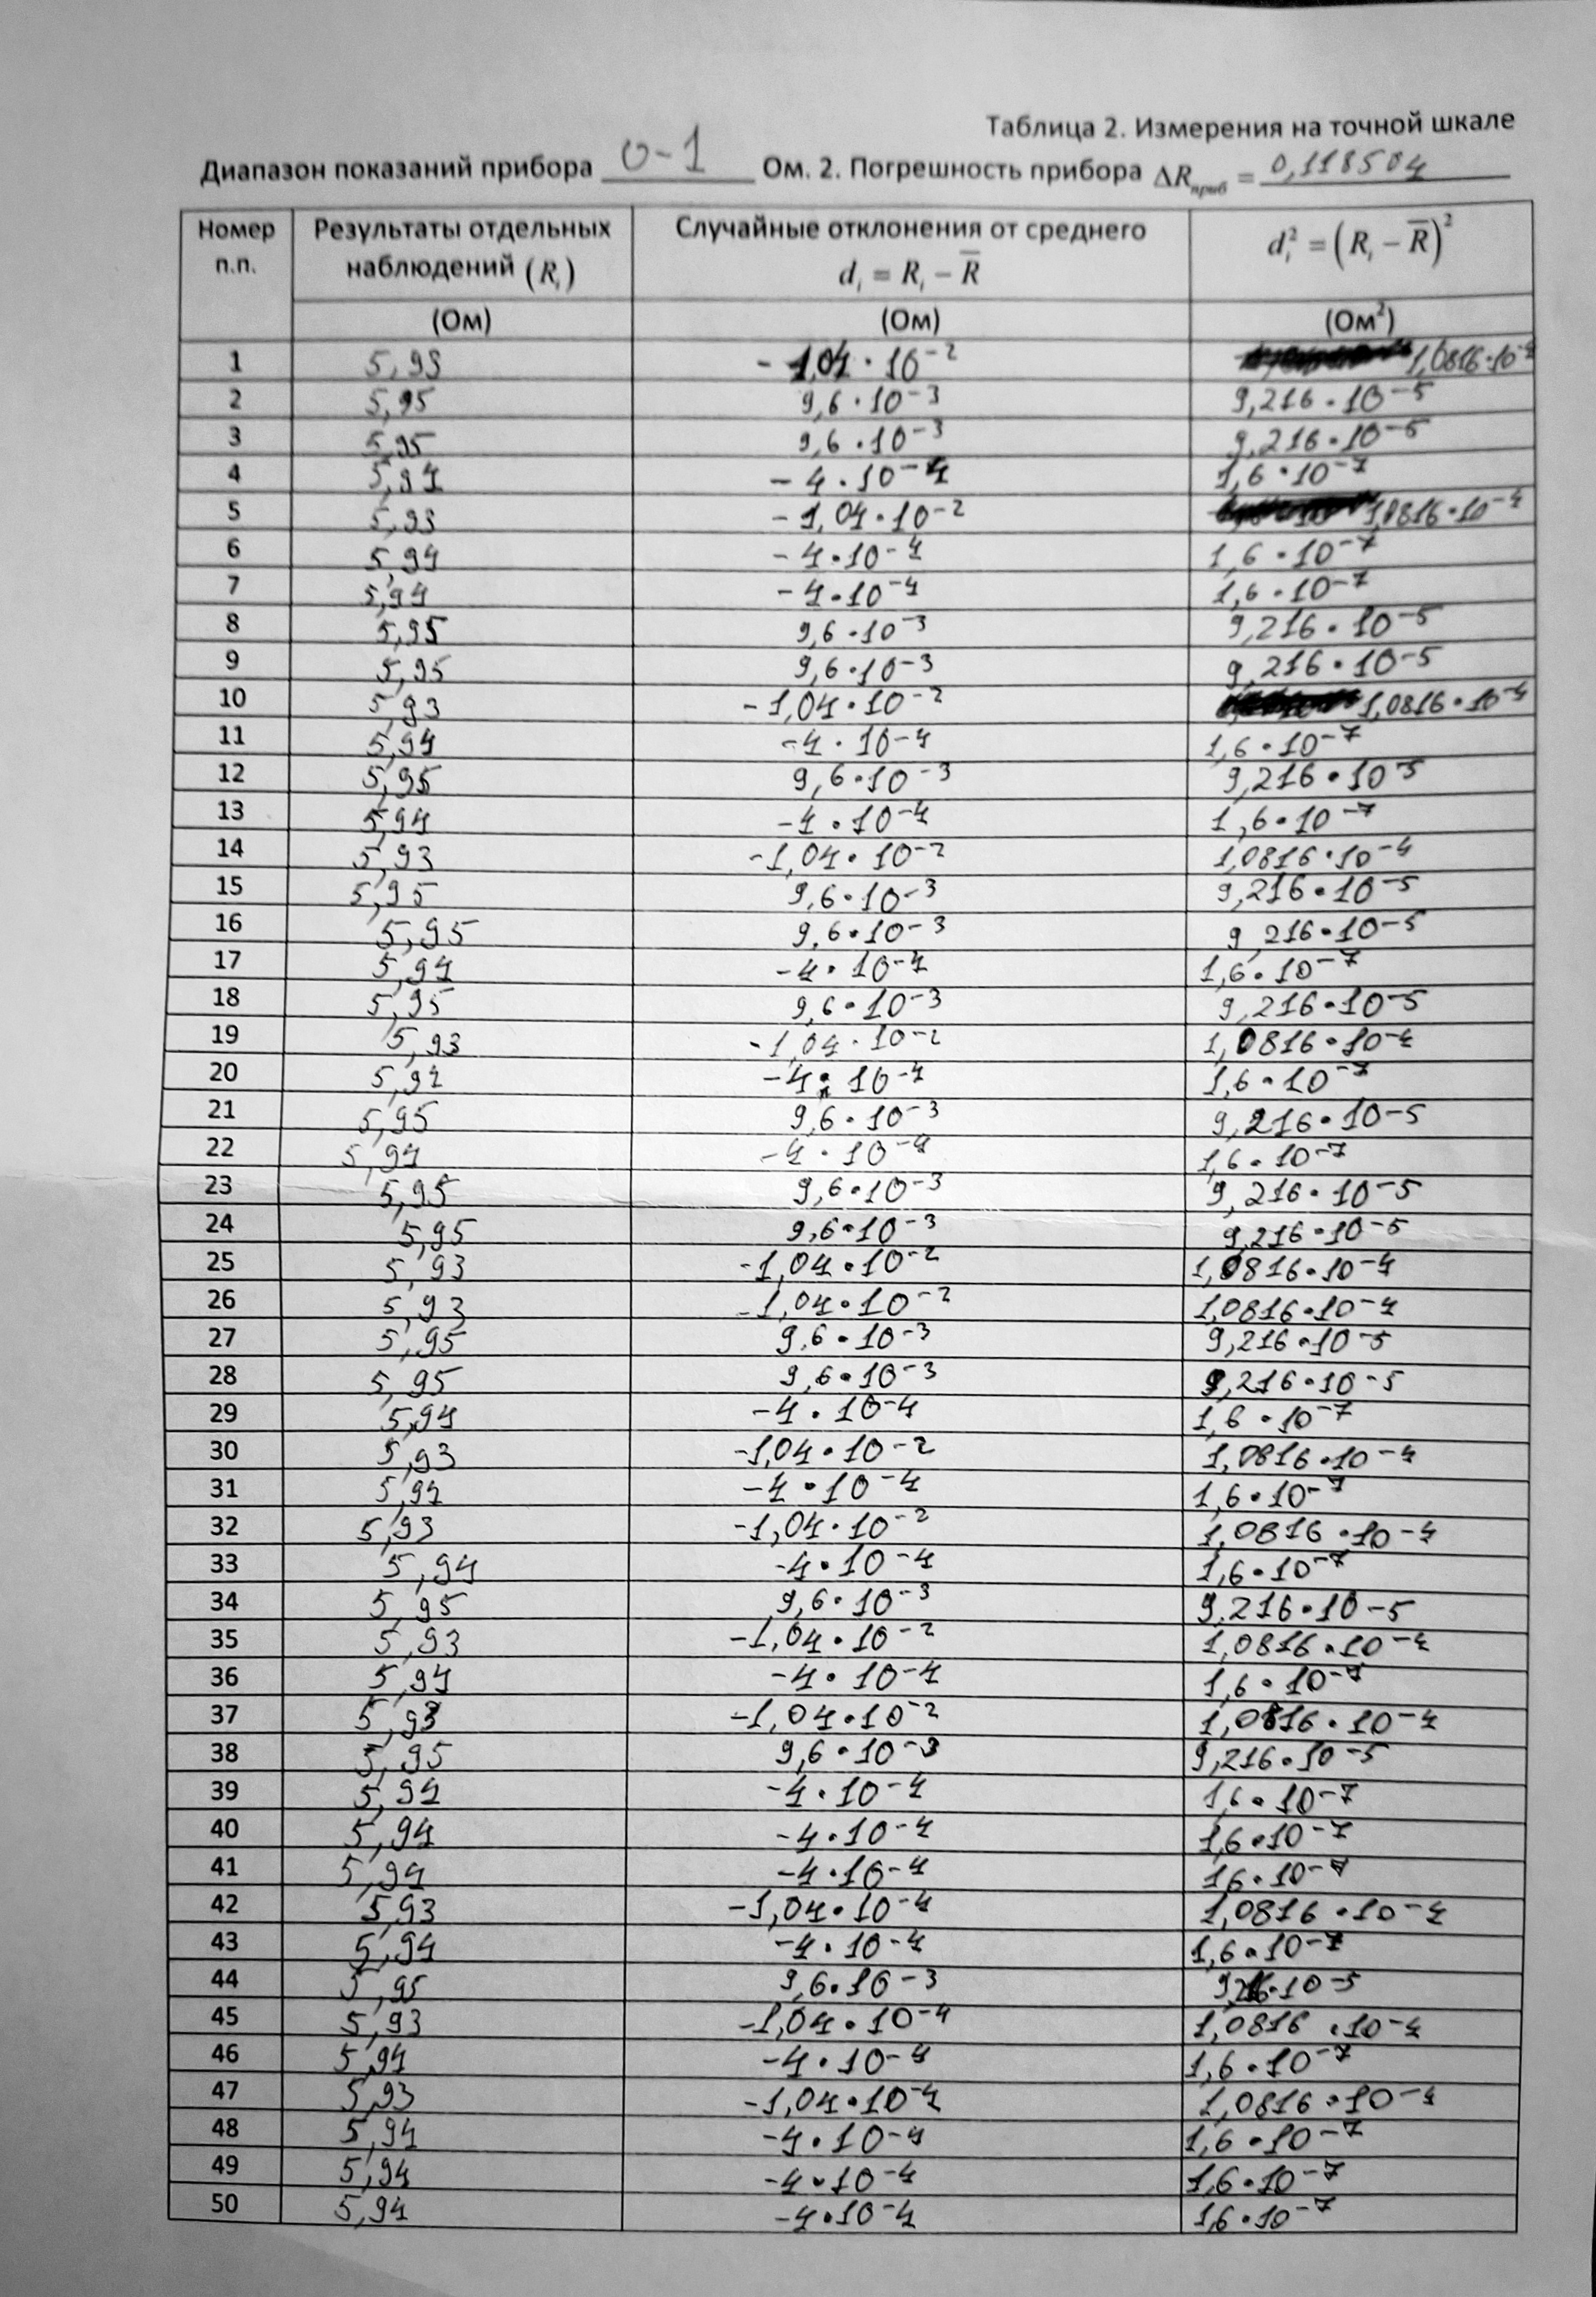 Таблица 2. Измерения на точной шкале
Диапазон показаний прибора 0-1 Ом. 2. Погрешность прибора ΔRприб = 0,118504
Номер п.п. Результаты отдельных наблюдений (Ri) Случайные отклонения от среднего di = Ri − R̅ di² = (Ri − R̅)²
(Ом) (Ом) (Ом²)
1 5,93 -1,04·10⁻² 1,0816·10⁻⁴
2 5,95 9,6·10⁻³ 9,216·10⁻⁵
3 5,95 9,6·10⁻³ 9,216·10⁻⁵
4 5,94 -4·10⁻⁴ 1,6·10⁻⁷
5 5,93 -1,04·10⁻² 1,0816·10⁻⁴
6 5,94 -4·10⁻⁴ 1,6·10⁻⁷
7 5,94 -4·10⁻⁴ 1,6·10⁻⁷
8 5,95 9,6·10⁻³ 9,216·10⁻⁵
9 5,95 9,6·10⁻³ 9,216·10⁻⁵
10 5,93 -1,04·10⁻² 1,0816·10⁻⁴
11 5,94 -4·10⁻⁴ 1,6·10⁻⁷
12 5,95 9,6·10⁻³ 9,216·10⁻⁵
13 5,94 -4·10⁻⁴ 1,6·10⁻⁷
14 5,93 -1,04·10⁻² 1,0816·10⁻⁴
15 5,95 9,6·10⁻³ 9,216·10⁻⁵
16 5,95 9,6·10⁻³ 9,216·10⁻⁵
17 5,94 -4·10⁻⁴ 1,6·10⁻⁷
18 5,95 9,6·10⁻³ 9,216·10⁻⁵
19 5,93 -1,04·10⁻² 1,0816·10⁻⁴
20 5,94 -4·10⁻⁴ 1,6·10⁻⁷
21 5,95 9,6·10⁻³ 9,216·10⁻⁵
22 5,94 -4·10⁻⁴ 1,6·10⁻⁷
23 5,95 9,6·10⁻³ 9,216·10⁻⁵
24 5,95 9,6·10⁻³ 9,216·10⁻⁵
25 5,93 -1,04·10⁻² 1,0816·10⁻⁴
26 5,93 -1,04·10⁻² 1,0816·10⁻⁴
27 5,95 9,6·10⁻³ 9,216·10⁻⁵
28 5,95 9,6·10⁻³ 9,216·10⁻⁵
29 5,94 -4·10⁻⁴ 1,6·10⁻⁷
30 5,93 -1,04·10⁻² 1,0816·10⁻⁴
31 5,94 -4·10⁻⁴ 1,6·10⁻⁷
32 5,93 -1,04·10⁻² 1,0816·10⁻⁴
33 5,94 -4·10⁻⁴ 1,6·10⁻⁷
34 5,95 9,6·10⁻³ 9,216·10⁻⁵
35 5,93 -1,04·10⁻² 1,0816·10⁻⁴
36 5,94 -4·10⁻⁴ 1,6·10⁻⁷
37 5,93 -1,04·10⁻² 1,0816·10⁻⁴
38 5,95 9,6·10⁻³ 9,216·10⁻⁵
39 5,94 -4·10⁻⁴ 1,6·10⁻⁷
40 5,94 -4·10⁻⁴ 1,6·10⁻⁷
41 5,94 -4·10⁻⁴ 1,6·10⁻⁷
42 5,93 -1,04·10⁻⁴ 1,0816·10⁻⁴
43 5,94 -4·10⁻⁴ 1,6·10⁻⁷
44 5,95 9,6·10⁻³ 9,216·10⁻⁵
45 5,93 -1,04·10⁻⁴ 1,0816·10⁻⁴
46 5,94 -4·10⁻⁴ 1,6·10⁻⁷
47 5,93 -1,04·10⁻⁴ 1,0816·10⁻⁴
48 5,94 -4·10⁻⁴ 1,6·10⁻⁷
49 5,94 -4·10⁻⁴ 1,6·10⁻⁷
50 5,94 -4·10⁻⁴ 1,6·10⁻⁷